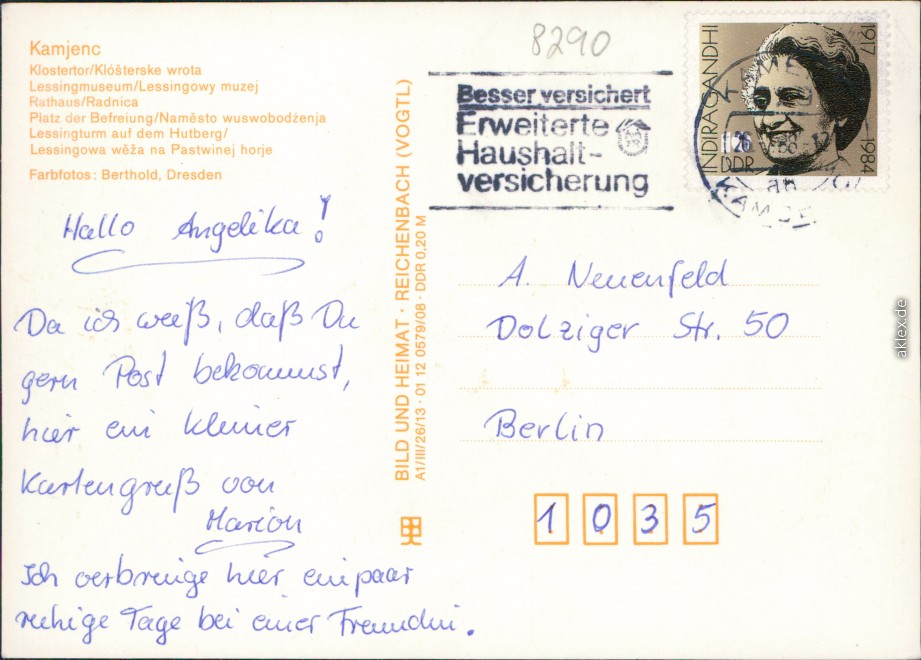 8290
Kamjenc
Klostertor/Klóšterske wrota
Lessingmuseum/Lessingowy muzej
Rathaus/Radnica
Platz der Befreiung/Naměsto wuswobodźenja
Lessingturm auf dem Hutberg/
Lessingowa wěža na Pastwinej horje
Farbfotos: Berthold, Dresden
Besser versichert
Erweiterte
Haushalt-
versicherung
INDIRA GANDHI
1917
1984
DDR
Hallo Angelika!
Da ich weiß, daß Du
gern Post bekommst,
hier ein kleiner
Kartengruß von
Marion
Ich verbringe hier ein paar
ruhige Tage bei einer Freundin.
BILD UND HEIMAT · REICHENBACH (VOGTL)
A1/III/26/13 · 01 12 0579/08 · DDR 0,20 M
A. Neuenfeld
Dolziger Str. 50
Berlin
1 0 3 5
aklex.de